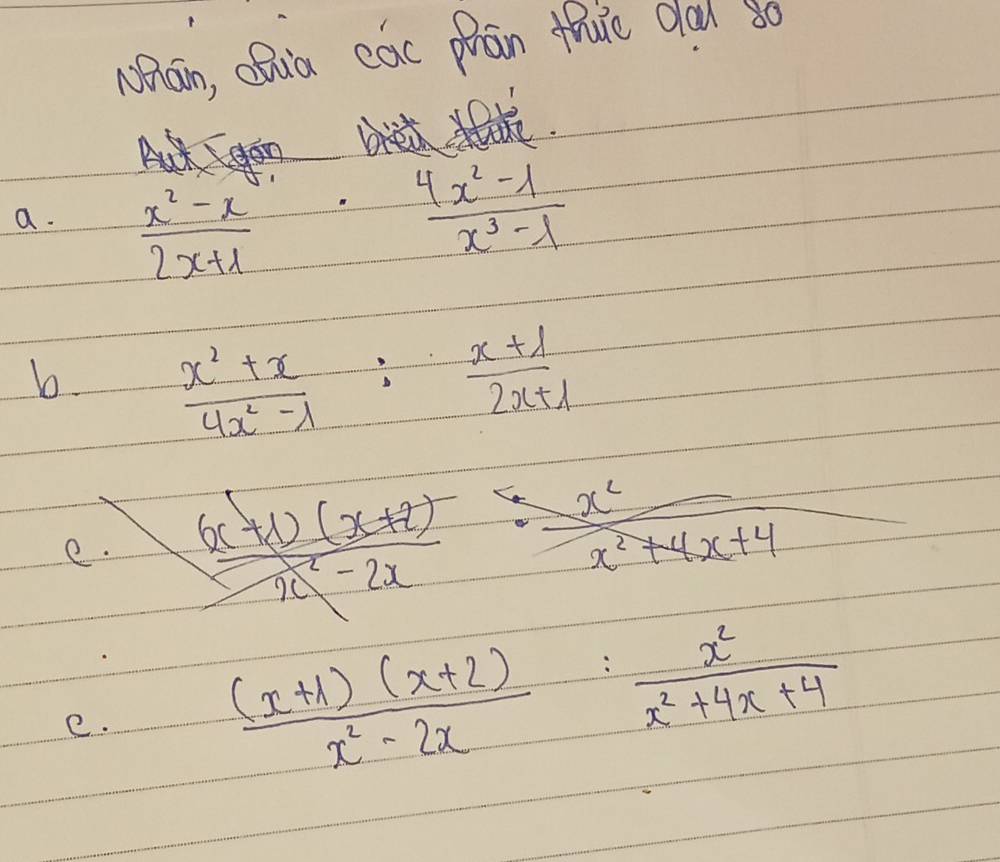 Nhân, chia các phân thức đại số
Rút gọn biểu thức.
a. \frac{x² - x}{2x+1} . \frac{4x² - 1}{x³ - 1}
b. \frac{x² + x}{4x² - 1} : \frac{x + 1}{2x+1}
c. \frac{(x+1) (x+2)}{x² - 2x} . \frac{x²}{x² + 4x + 4}
c. \frac{(x+1) (x+2)}{x² - 2x} : \frac{x²}{x² + 4x + 4}